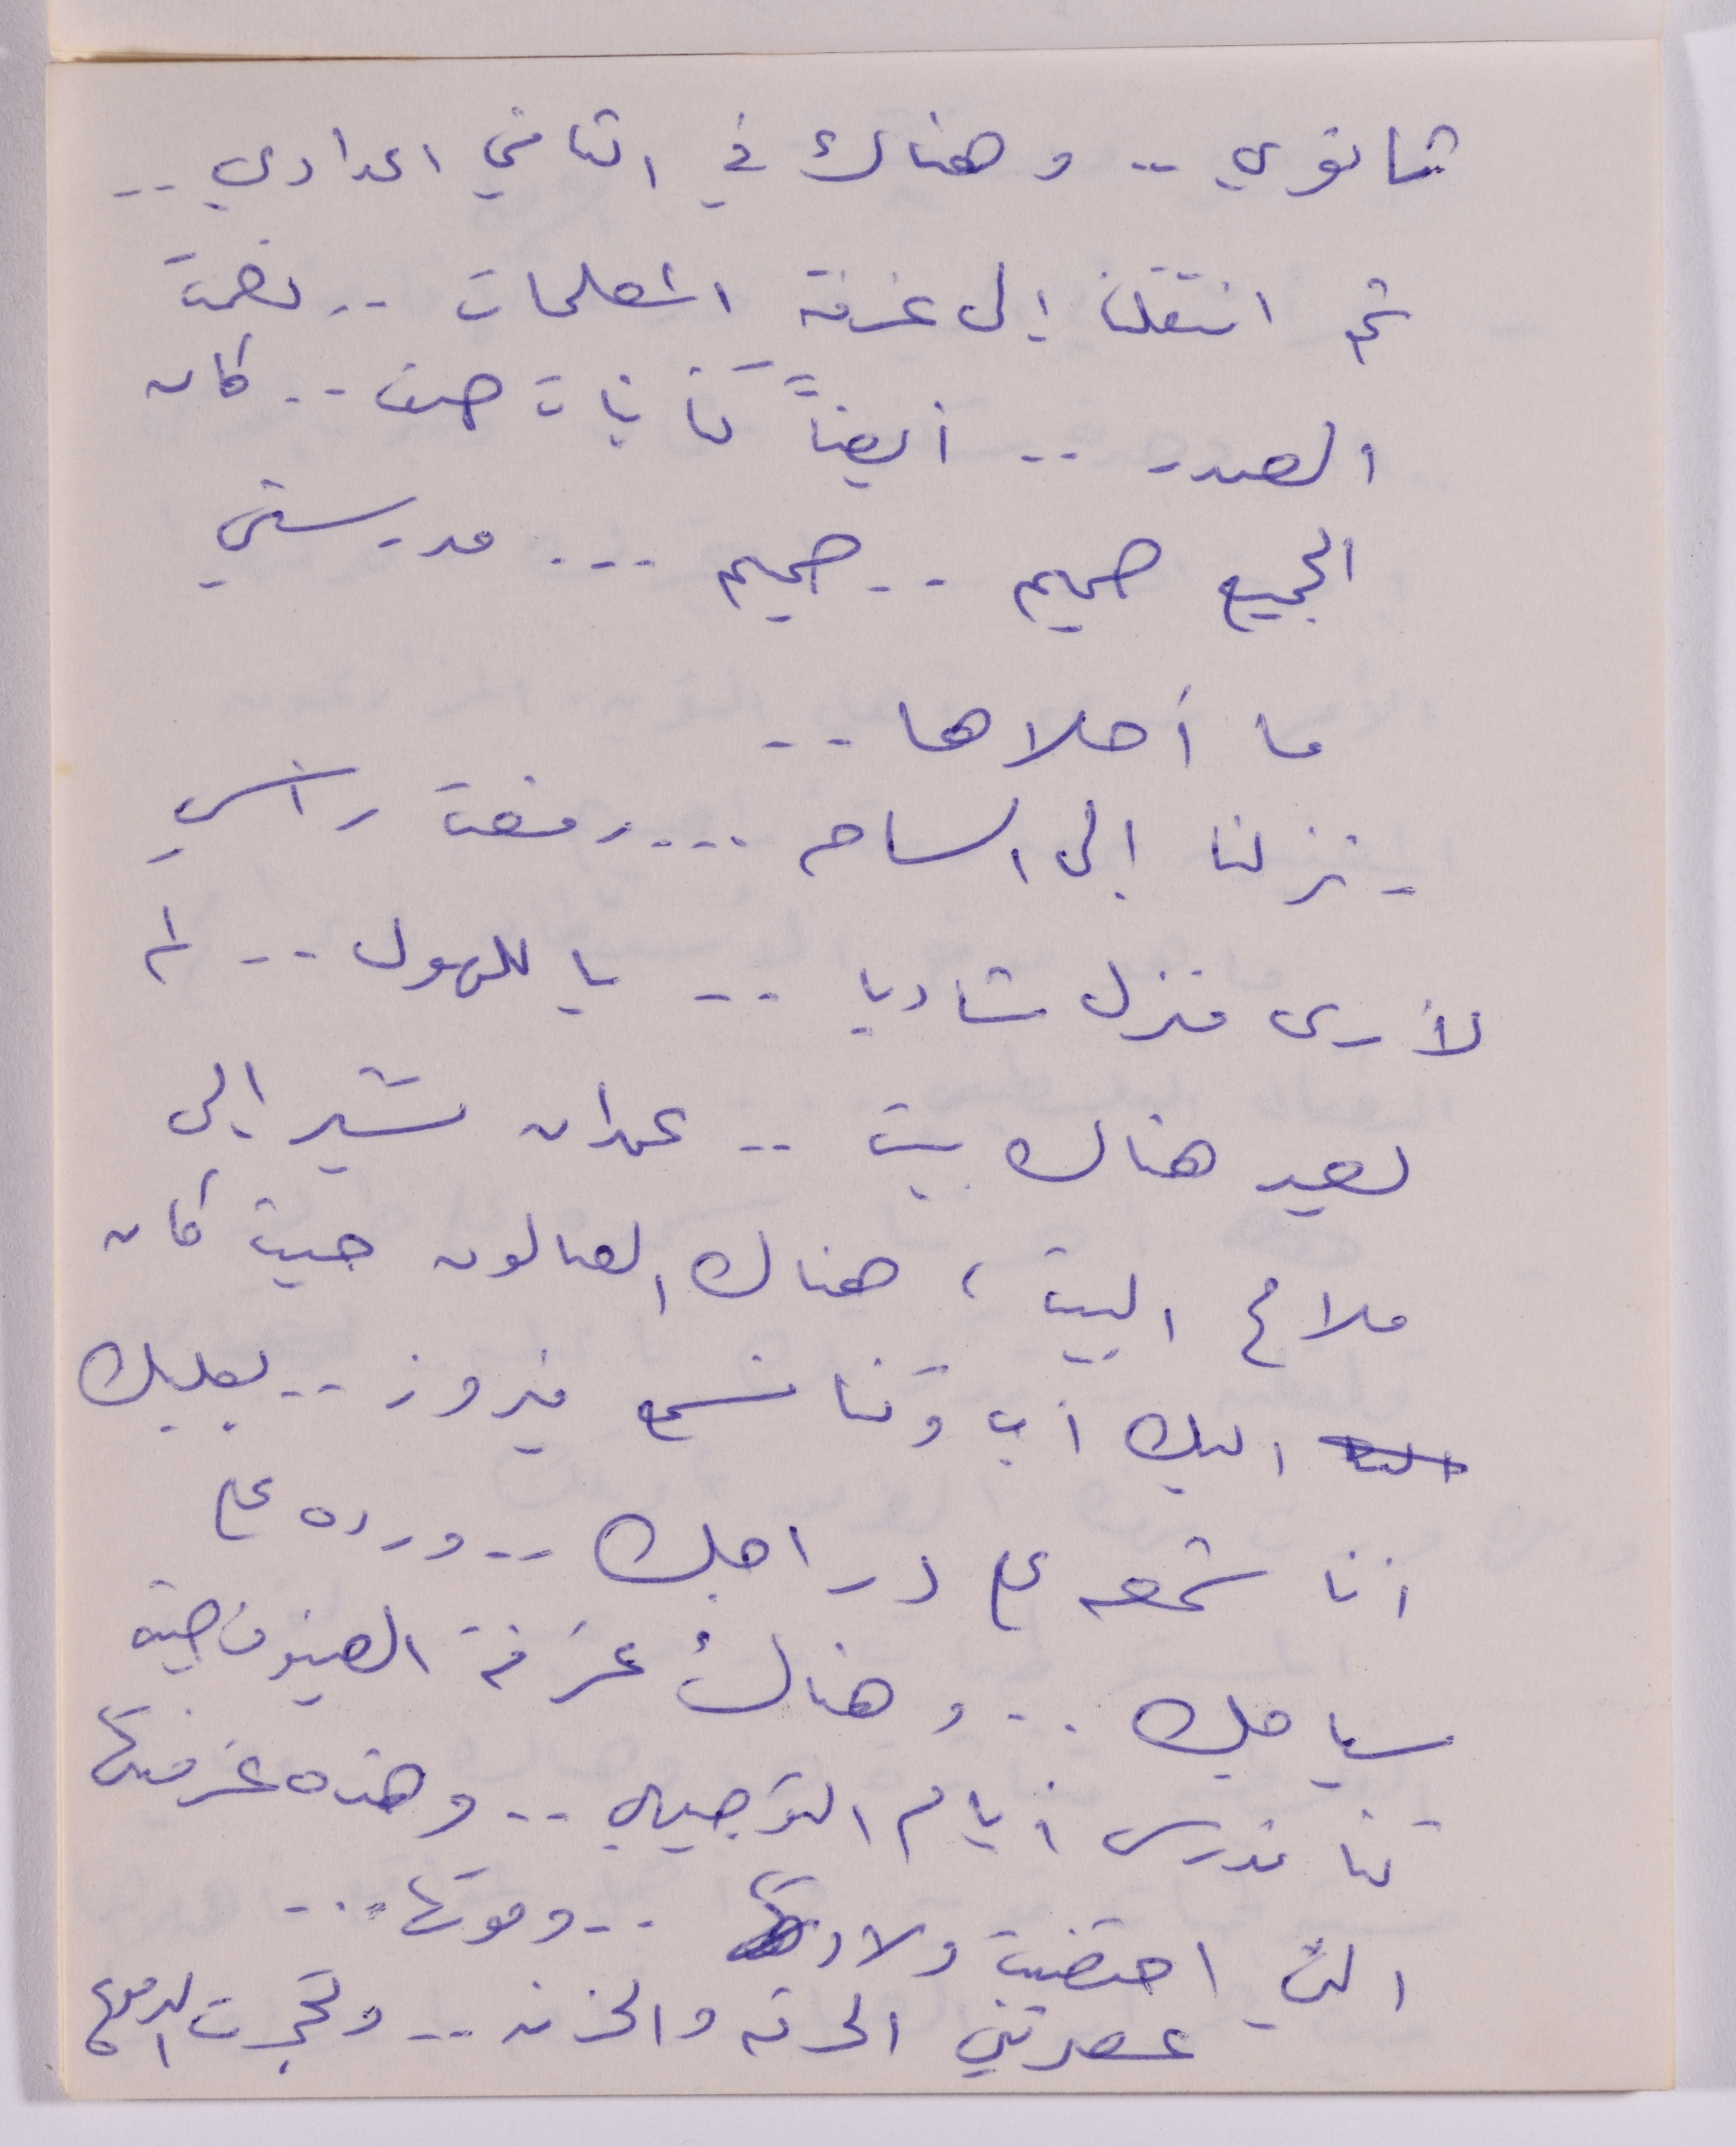 ثانوي .. وهناك في الثاني اعدادي ..
ثم انتقلنا إلى غرفة المعلمات ..
الصدر .. أيضاً كأنهات صف .. كان
الجميع حميم .. حميم ... مدرستي
ما أحلاها ..
نزلنا إلى الساحة .... رفعت رأسي
لأرى منزل شاديا .. يا للهول .. لم
يعد هناك بيت .. عمدان تشير إلى
ملامح البيت ، هناك الصالون حيث كان
البيك أب وكنا نسمع فيروز .. بعلبك
أنا شمعه على دراجك .. ورده على
سياجك .. وهناك غرفة الضيوف حيث
كنا ندرس أيام التوجيهي .. وهذه غرفتها
التي احتضنت ولادتها .. وموتها ...
عصرتني الحرقة والحزن .. وتحجرت الدموع